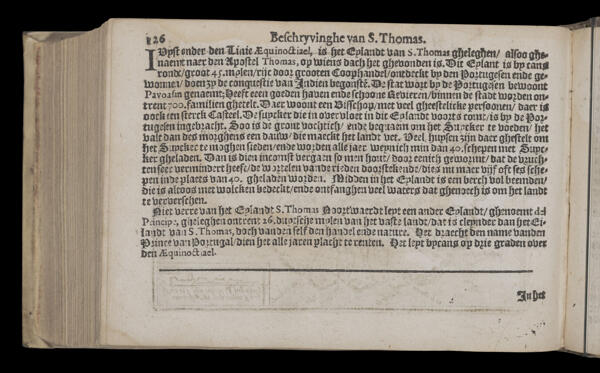 126
Beschryvinghe van S. Thomas.
IUyst onder den Linie Æquinoctiael, is het Eylandt van S. Thomas gheleghen/ alsoo ghe-
naemt naer den Apostel Thomas, op wiens dach het ghevonden is. Dit Eylant is by cans
ronde/ groot 45. mylen/ rijc door grooten Coophandel/ ontdeckt by den Portugesen ende ge-
wonnen/ doen zy de conquestie van Indien begonste. De stat wort by de Portugesen bewoont
Pavoasan genaemt; heeft een goeden haven ende schoone Revieren/ binnen de stadt worden on-
trent 700. familien ghetelt. Daer woont een Bisschop/ met veel gheestelicke persoonen/ daer is
oock een sterck Casteel. De suycker die in overvloet in dit Eylandt voorts comt/ is by de Por-
tugesen ingebracht. Soo is de gront vochtich/ ende bequaem om het Suycker te voeden/ het
valt dan des morghens een dauw/ die maeckt het landt vet. Veel huysen zijn daer ghestelt om
het Suycker te moghen sieden/ ende worden alle jaer weynich min dan 40. schepen met Suyc-
ker gheladen. Dan is dien incomst vergaen so men hout/ door eenich gewormt/ dat de vruch-
ten seer vermindert heeft/ de wortelen van de rieden doorstekende/ dies nu maer vijf oft ses sche-
pen in de plaets van 40. gheladen worden. Midden in het Eylandt is een berch vol beemden/
die is altoos met wolcken bedeckt/ ende ontfanghen veel waters dat ghenoech is om het landt
te ververschen.
Niet verre van het Eylandt S. Thomas Noortwaerdt leyt een ander Eylandt/ ghenoemt del
Principe, gheleghen ontrent 26. duytsche mylen van het vaste landt/ dat is cleynder dan het Ei-
landt van S. Thomas, doch van den self den handel ende nature. Het draecht den name vanden
Prince van Portugal/ dien het alle jaren placht te renten. Het leyt bycans op drie graden over
den Æquinoctiael.
In het